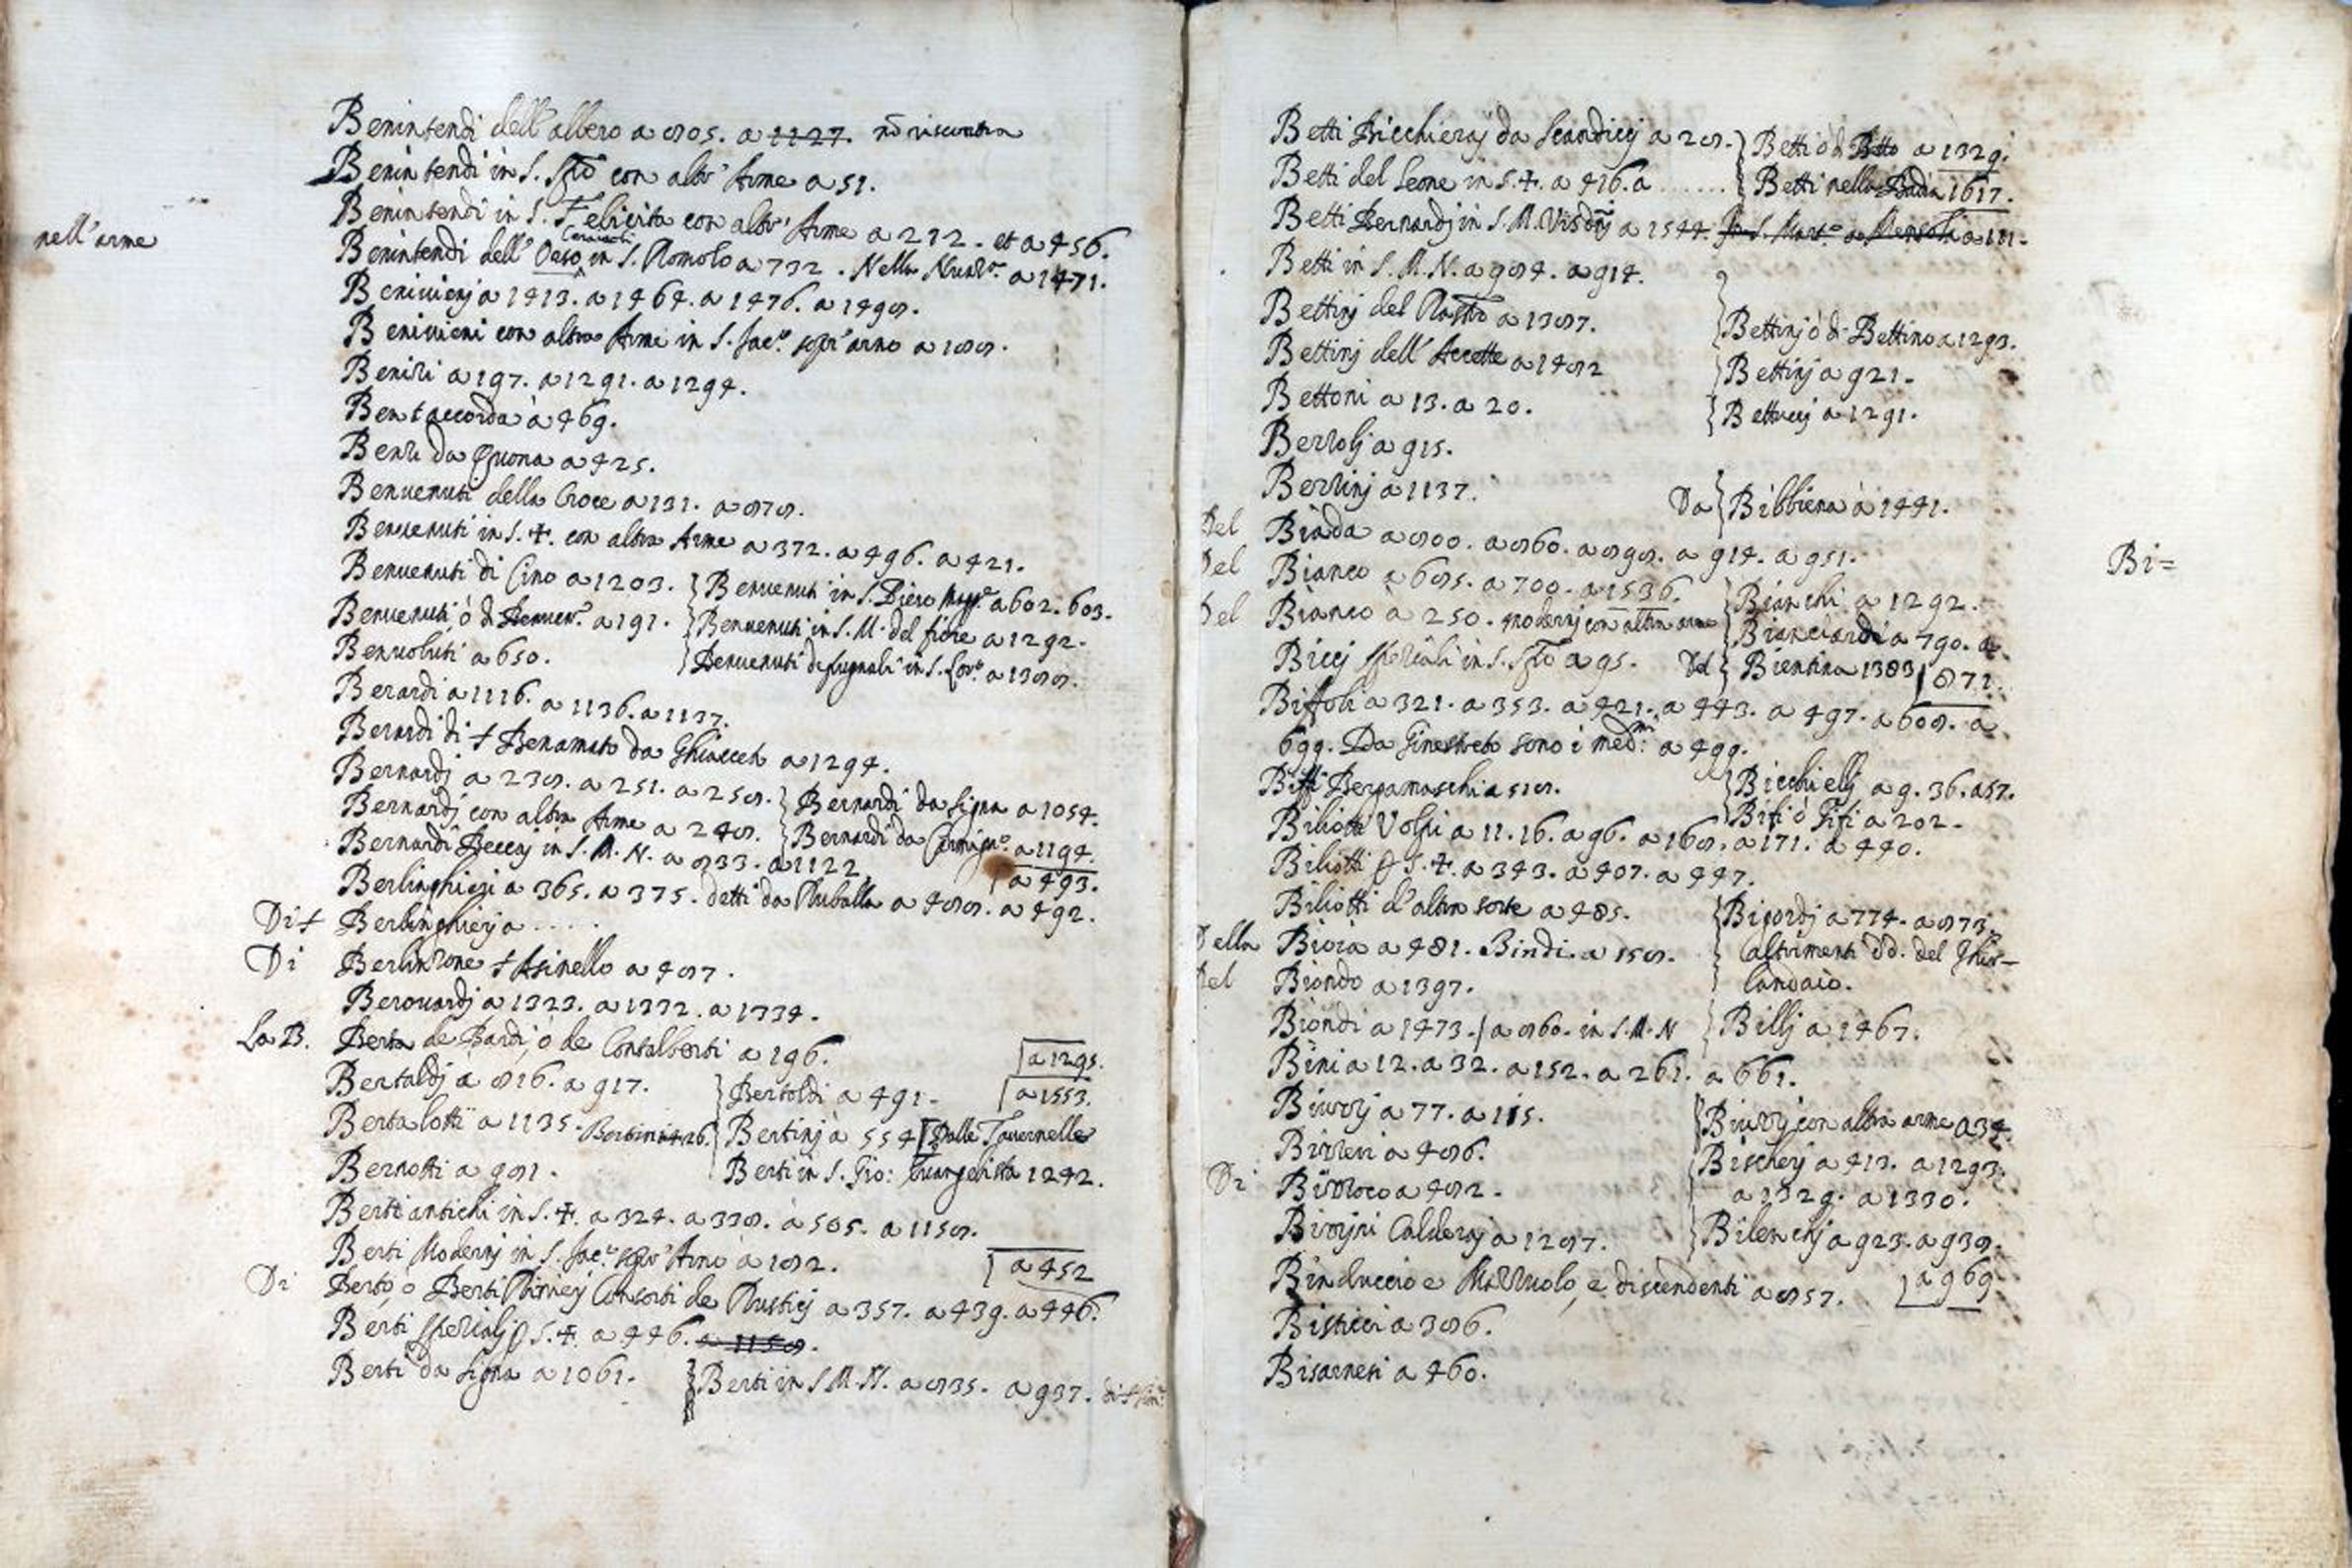 Benintendi dell'albero a 805. a 1127. nõ riscontra
Benintendi in S. Sp.to con altr' Arme a 51.
Benintendi in S. Felicita con altr' Arme a 212. et a 456.
nell'arme
Benintendi dell' Orso in S. Romolo a 732. Nella Nunz.ta a 1471.
Benivienj a 1413. a 1464. a 1476. a 1498.
Benivieni con altra Arme in S. Jac.o sopr'arno a 188.
Benizi a 197. a 1291. a 1294.
Bentaccorda à 469.
Benzi da a 425.
Benvenuti della Croce a 131. a 878.
Benvenuti in S. +. con altra Arme a 372. a 496. a 421.
Benvenuti di Cino a 1203. } Benvenuti in S. Piero Magg.e a 602. 603.
Benvenuti ò di Benven.o a 191. } Benvenuti in S. M. del fiore a 1292.
Benvoluti a 650. } Benvenuti in S. Lor.o a 1388.
Berardi a 1116. a 1136. a 1137.
Berardi di + Benamato da Ghiacceto a 1294.
Bernardj a 238. a 251. a 258. } Bernardi da Signa a 1054.
Bernardj con altra Arme a 248. } Bernardi da Carmign.o a 1194.
Bernardi Beccaj in S. M. N. a 833. a 1122. a 493.
Berlinghieri a 365. a 375. detti da Ruballa a 488. a 492.
Di + Berlinghierj a .....
Di Berlinzone + Asinello a 487.
Berovardj a 1323. a 1332. a 1334.
La B. Berta de Bardi, ò de Contalberti a 196. a 1295.
Bertaldj a 816. a 917. } Bertoldi a 491. a 1553.
Bertalotti a 1135. Bertini 426. } Bertinj à 554 Dalle Tavernelle
Bernotti a 981. Berti in S. Gio: Evangelista 1242.
Berti antichi in S. +. a 324. a 338. a 505. a 1158.
Berti Modernj in S. Jac.o sopr'Arno à 182. a 452
Di Berto, o Berti Riniej Consorti de Rusticj a 357. a 439. a 446.
Berti Spezialj S. +. a 446. a 1158.
Berti da Signa a 1061. } Berti in S. M. N. a 835. a 937.
Betti Bicchieraj da Scandiccj a 28. } Betti ò di Betto a 1329.
Betti del Leone in S. +. a 416. a ...... } Betti nella Badia 1617.
Betti Bernardj in S. M. Visdnj a 1544. In S. Mart.o a Mensola a 111.
Betti in S. M. N. a 984. a 914.
Bettinj del Rastro a 1387. } Bettinj ò di Bettino a 1293.
Bettinj dell' Accette a 1482 } Bettinj a 921.
Bettoni a 13. a 20. } Bettuccj a 1291.
Bezzolj a 915.
Bezzinj a 1137. Da } Bibbiena à 1441.
Del Biada a 800. a 860. a 898. a 914. a 951.
Bi=
Del Bianco a 685. a 700. a 1536. } Bianchi a 1292.
Del Bianco à 250. modernj con altra arme } Bianciardi a 790. a
Biccj speziali in S. Sp.to a 95. Del } Bientina 1383 871.
Biffoli a 321. a 353. a 421. a 443. a 497. a 608. a
699. Da Ginestreto sono i med.mi: a 499.
Biffi Bergamaschi a 518. } Bicchiellj a 9. 36. a 57.
} Bifi ò Fifi a 202.
Biliotti Volpi a 11. 16. a 96. a 168. a 171. a 440.
Biliotti S. +. a 343. a 407. a 447.
Biliotti d'altra sorte a 485. } Bigordj a 774. a 873.
Della Bioia a 481. Bindi. a 158. altrimenti dd. del Ghir-
Del Biondo a 1397. landaio.
Biondi a 1473. / a 860. in S. M. N } Billj a 1467.
Bini a 12. a 32. a 152. a 261. a 661.
Bivozj a 77. a 115. } con altra arme a 34.
Birzevi a 486. } Bischerj a 413. a 1293.
Di Bizzoco a 482. a 1329. a 1330.
Calderaj a 1287. } Bilenchj a 923. a 938.
Binduccio e Mazzuolo, e discendenti a 857. a 969
Bisticci a 386.
Bisarnesi a 460.